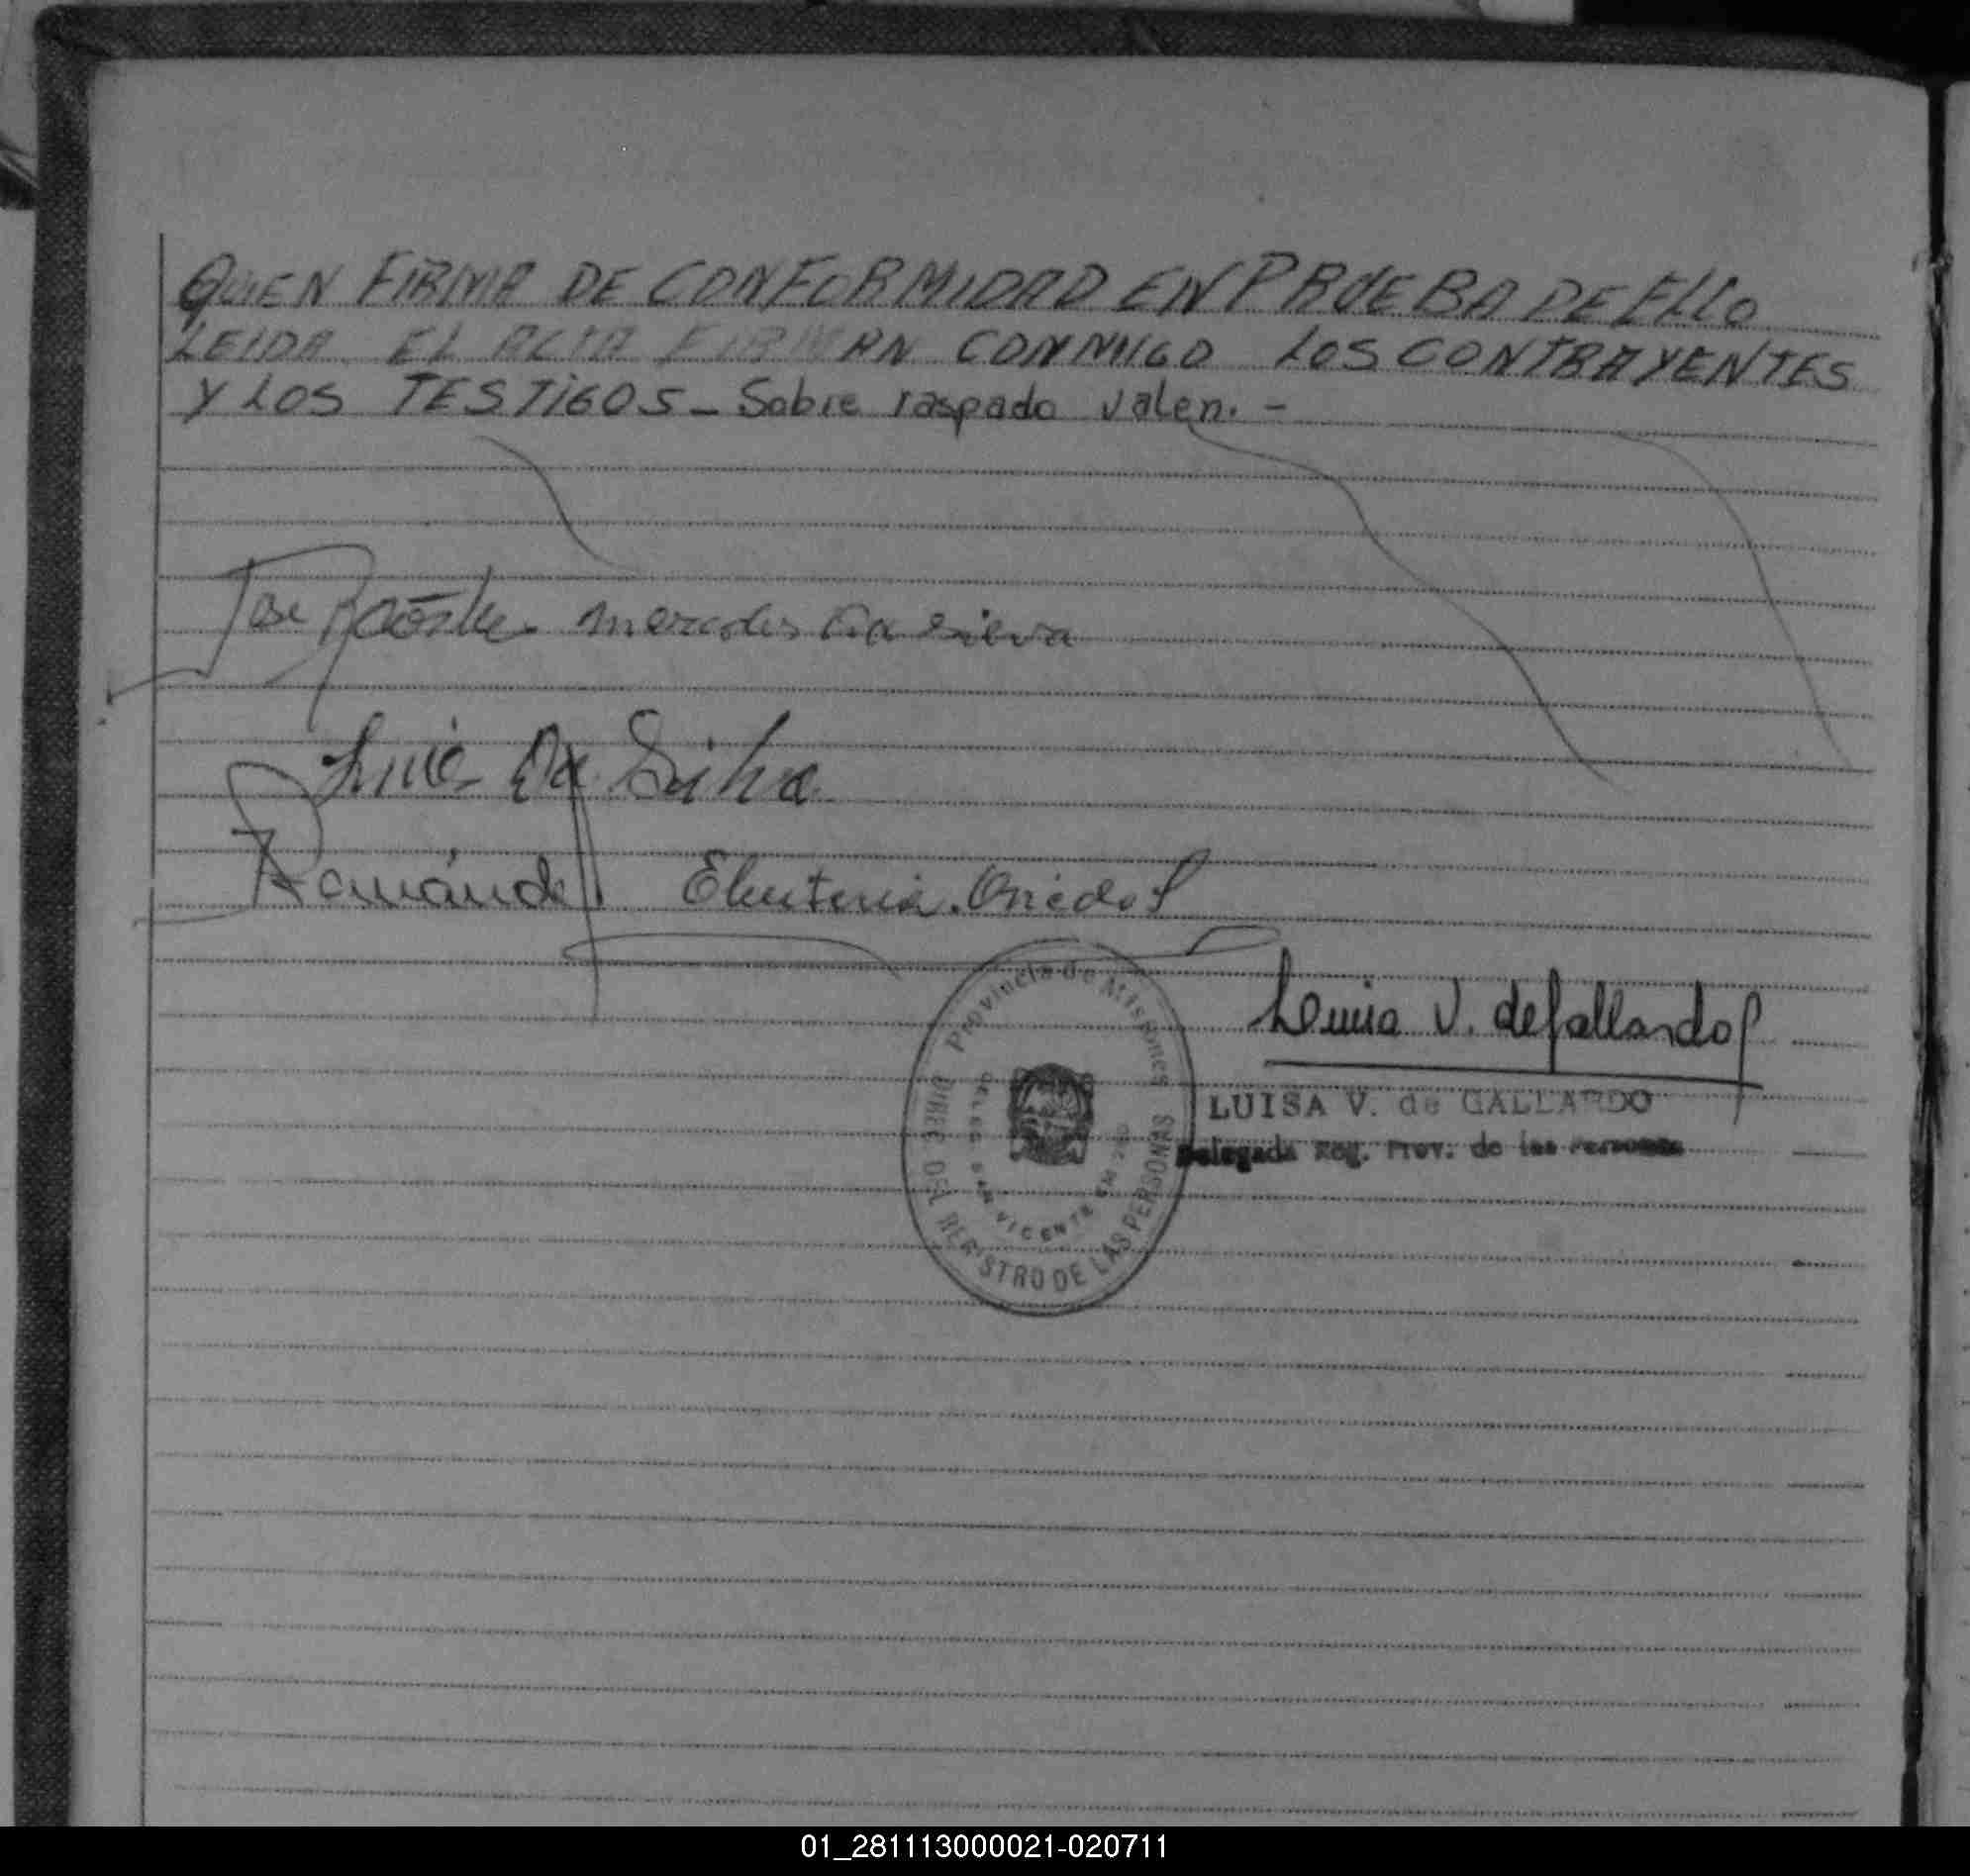 QUIEN FIRMA DE CONFORMIDAD EN PRUEBA DE ELLO
LEIDA EL ACTA FIRMAN CONMIGO LOS CONTRAYENTES
Y LOS TESTIGOS - Sobre raspado valen. -
Jose mercedes Da silva
Luis Da Silva
Fernández Eleuteria. Oviedo
Luisa V. de Gallardo
Provincia de Misiones
DIREC DEL REGISTRO DE LAS PERSONAS
DELEG. SAN VICENTE
LUISA V. de GALLARDO
Delegada Reg. Prov. de las Personas
01_281113000021-020711